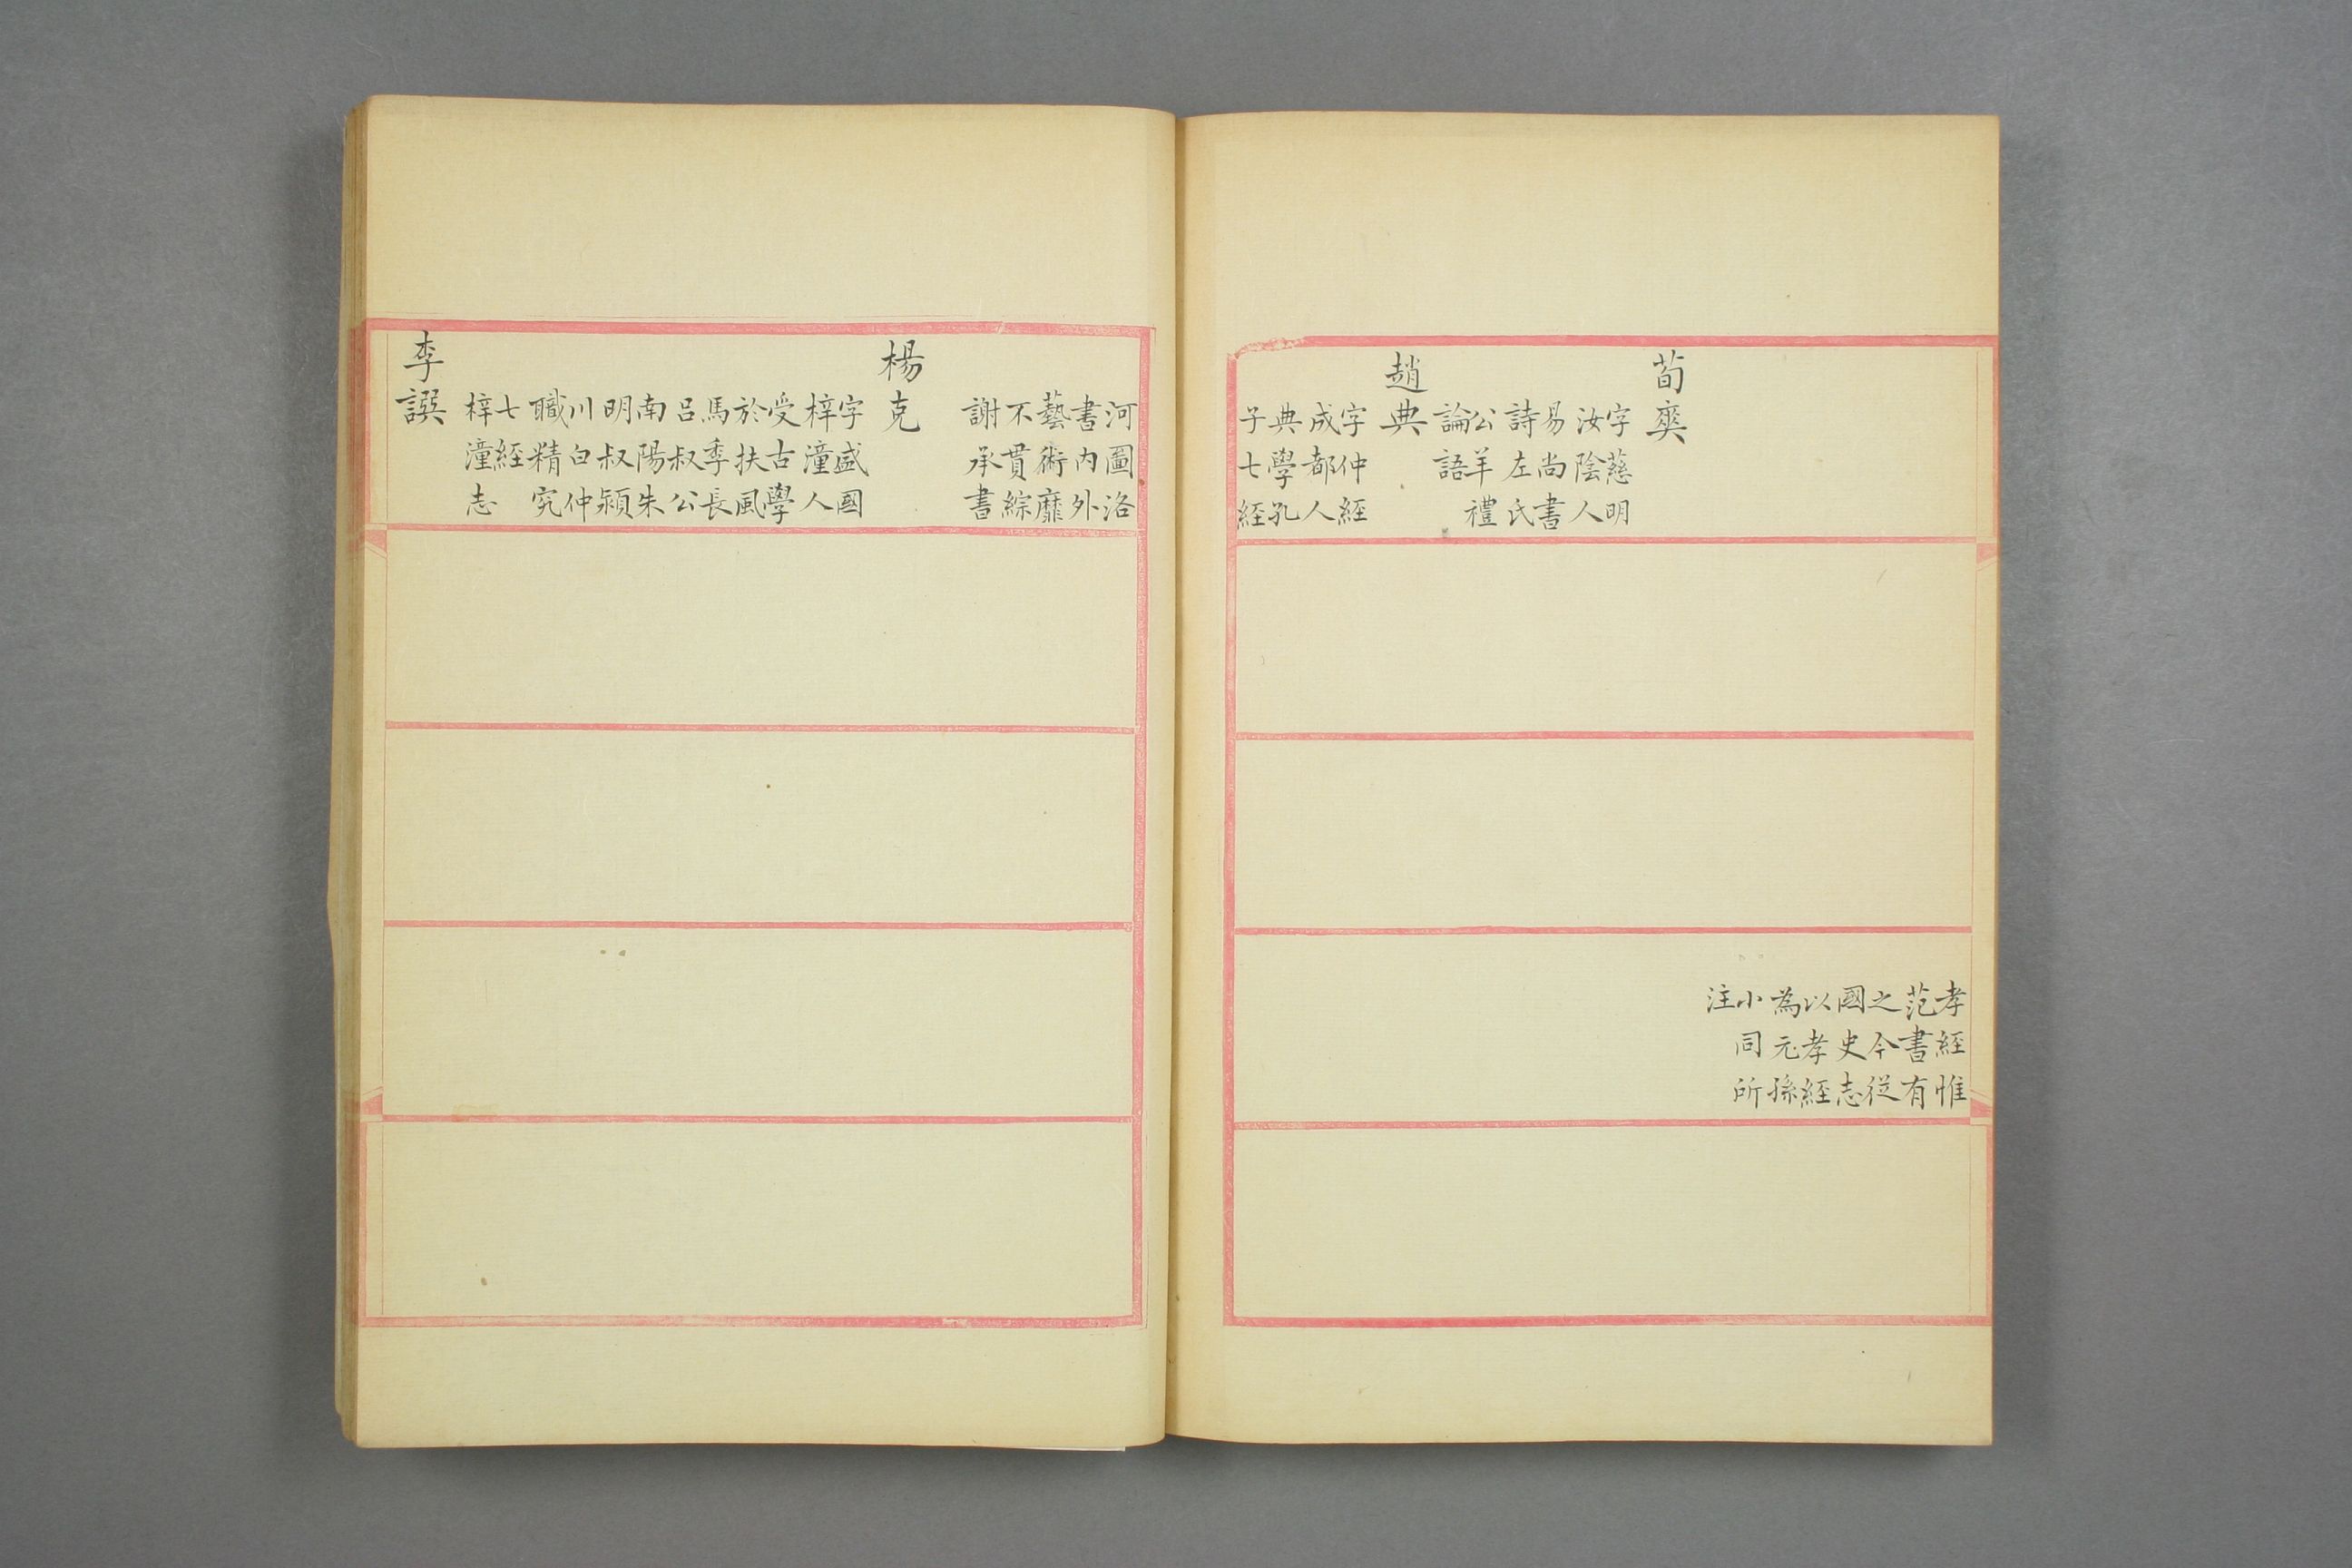 荀爽
字慈明
汝陰人
易尚書
詩左氏
公羊禮
論語
趙典
字仲經
成都人
典學孔
子七經
孝經惟
范書有
之今從
國史志
以孝經
為元孫
小同所
注
河圖洛
書內外
藝術靡
不貫綜
謝承書
楊克
字盛國
梓潼人
受古學
於扶風
馬季長
呂叔公
南陽朱
明叔潁
川白仲
職精究
七經
梓潼志
李譔